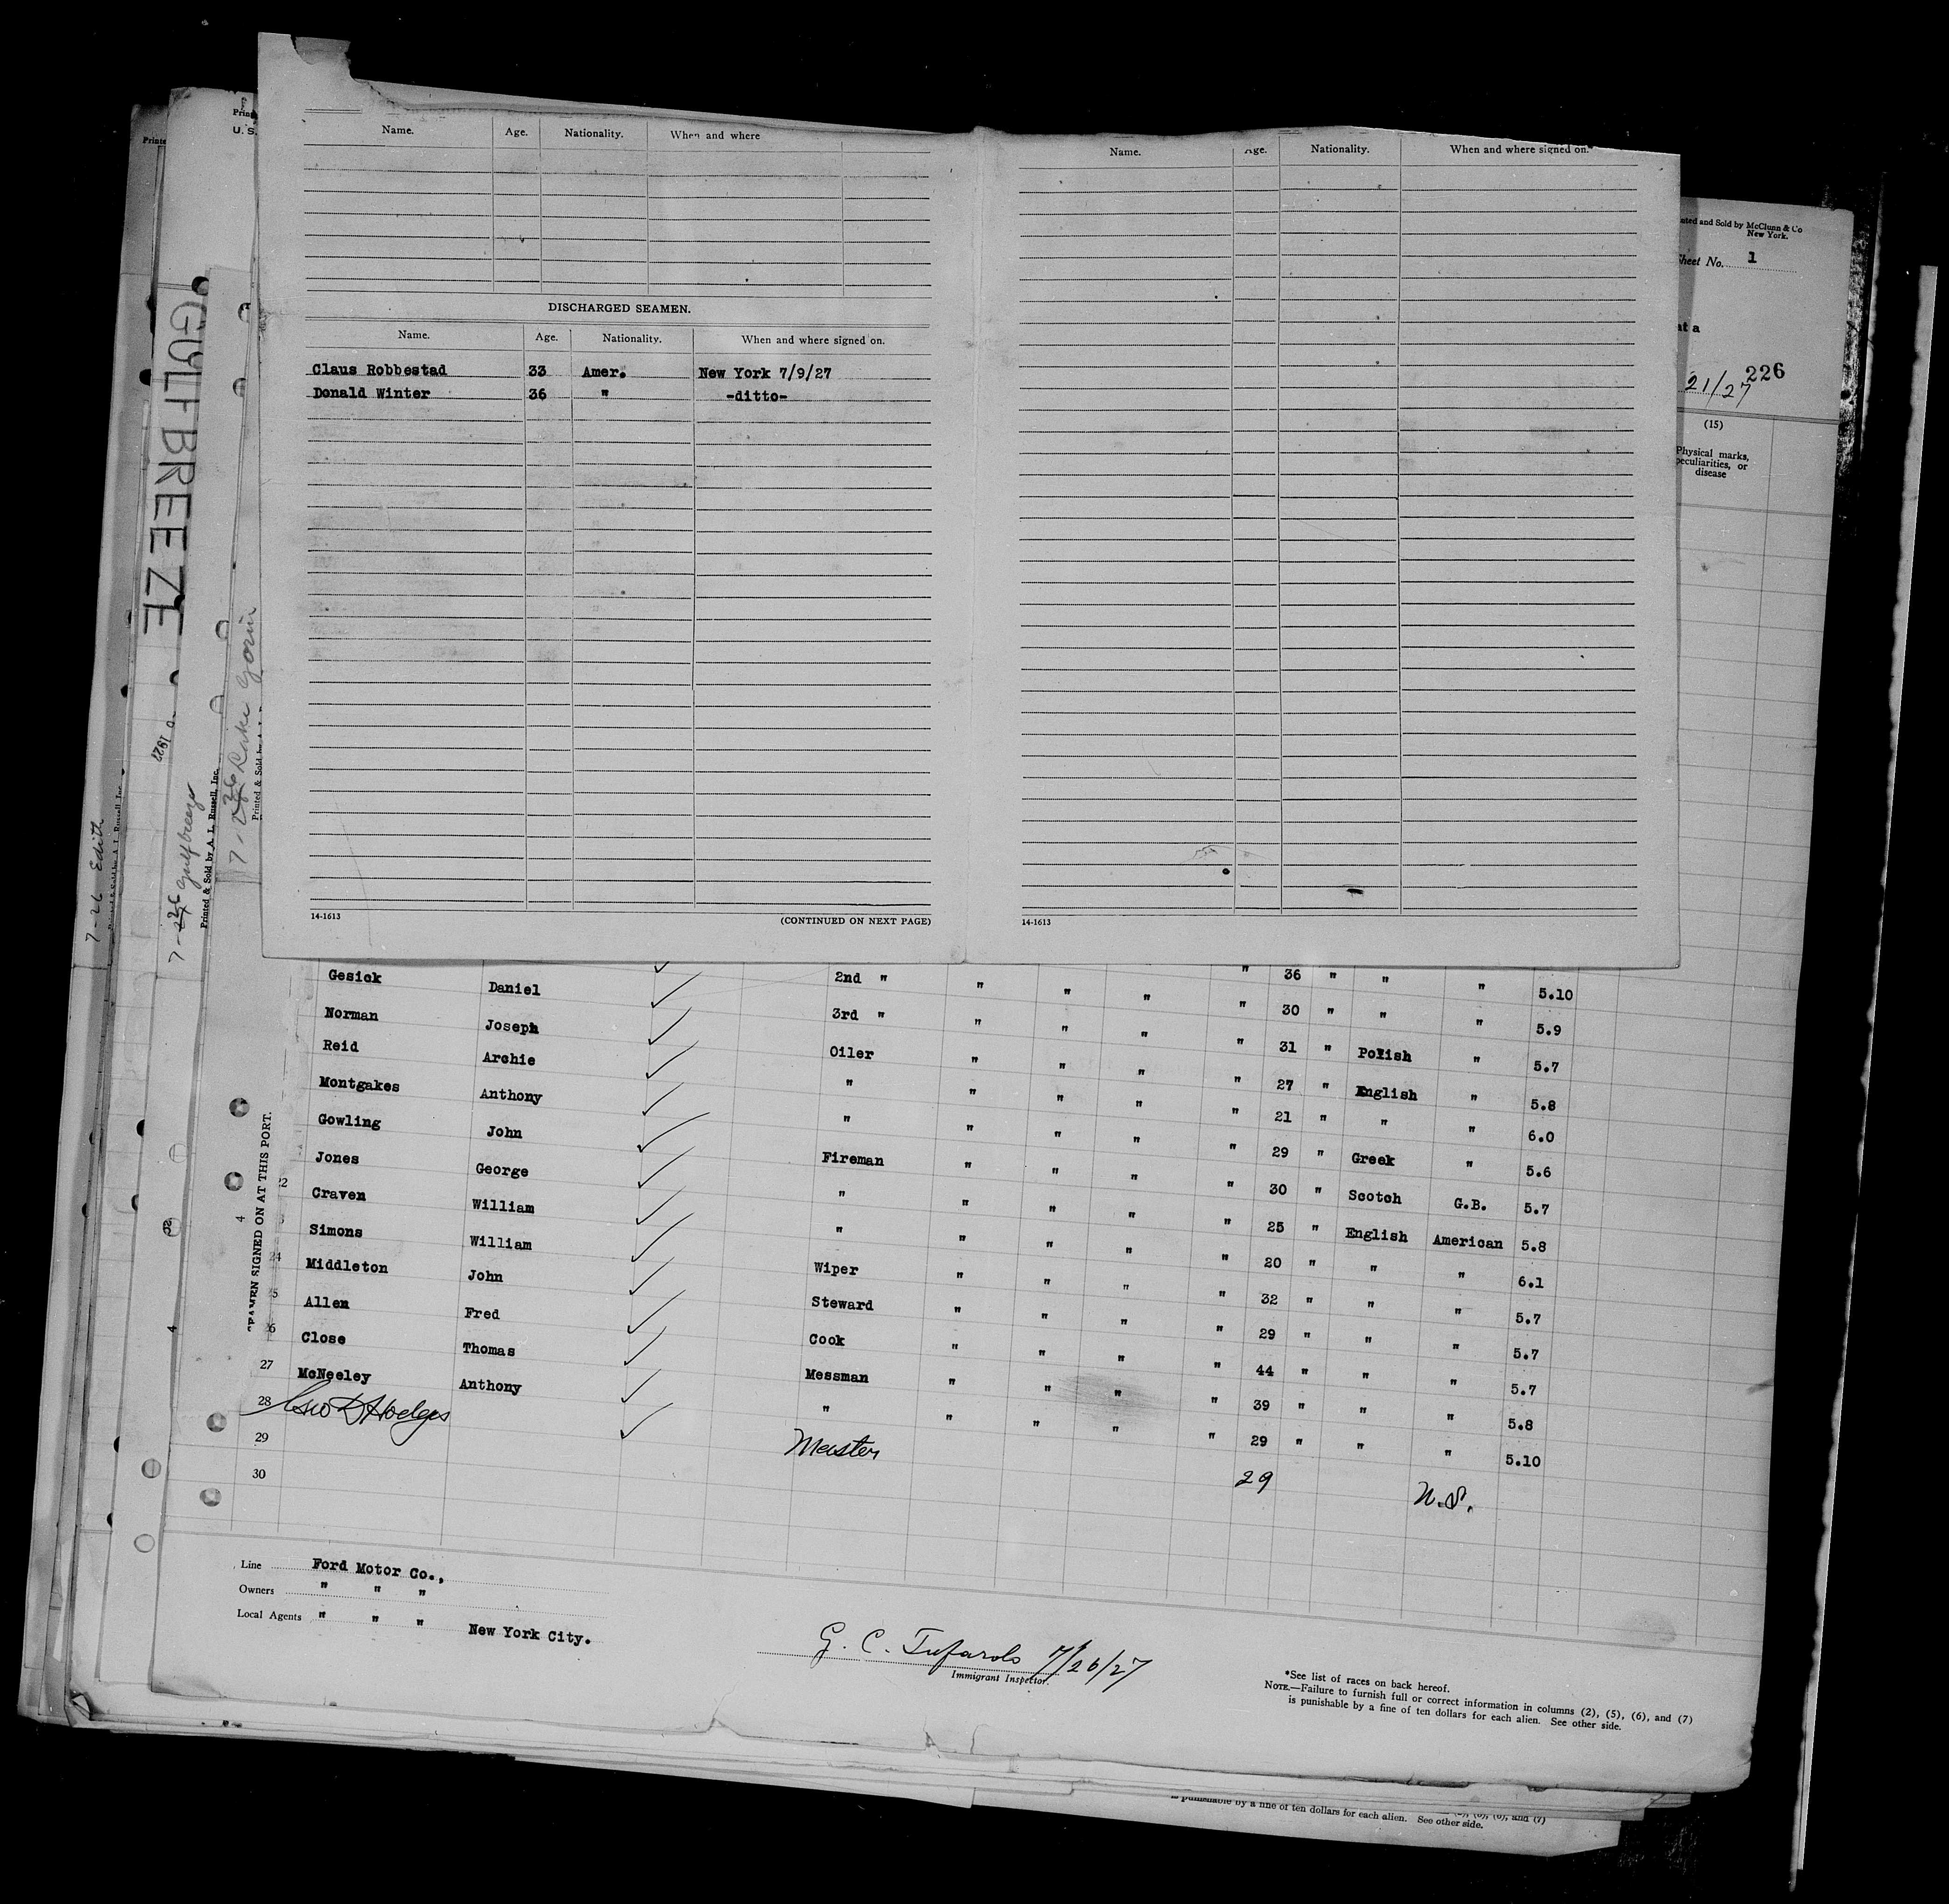 Name. Age. Nationality. When and where
DISCHARGED SEAMEN.
Name. Age. Nationality. When and where signed on.
Claus Robbestad 33 Amer. New York 7/9/27
Donald Winter 36 " -ditto-
14-1613 (CONTINUED ON NEXT PAGE)
Name. Age. Nationality. When and where signed on.
14-1613
Printed and Sold by McClunn & Co
New York.
Sheet No. 1
at a
226
21/27
(15)
Physical marks,
peculiarities, or
disease
U. S.
GULFBREEZE
1927
7-26 Edith
7-26 Gulfbreeze
Printed & Sold by A. L. Russell, Inc.
7-26 Lake Gorin
Printed & Sold by A. L.
SEAMEN SIGNED ON AT THIS PORT.
4
4
Gesick Daniel 2nd " " " " " 36 " " " 5.10
Norman Joseph 3rd " " " " " 30 " " " 5.9
Reid Archie Oiler " " " " 31 " Polish " 5.7
Montgakes Anthony " " " " " 27 " English " 5.8
Gowling John " " " " " 21 " " " 6.0
Jones George Fireman " " " " 29 " Greek " 5.6
22 Craven William " " " " " 30 " Scotch G.B. 5.7
Simons William " " " " " 25 " English American 5.8
24 Middleton John Wiper " " " " 20 " " " 6.1
25 Allen Fred Steward " " " " 32 " " " 5.7
26 Close Thomas Cook " " " " 29 " " " 5.7
27 McNeeley Anthony Messman " " " " 44 " " " 5.7
28 Geo D Hodges " " " " " 39 " " " 5.8
29 Master " 29 " " " 5.10
30 29 U.S.
Line Ford Motor Co.,
Owners " " "
Local Agents " " " New York City.
G. C. Tufarolo 7/26/27
Immigrant Inspector.
*See list of races on back hereof.
NOTE.—Failure to furnish full or correct information in columns (2), (5), (6), and (7)
is punishable by a fine of ten dollars for each alien. See other side.
is punishable by a fine of ten dollars for each alien. See other side.